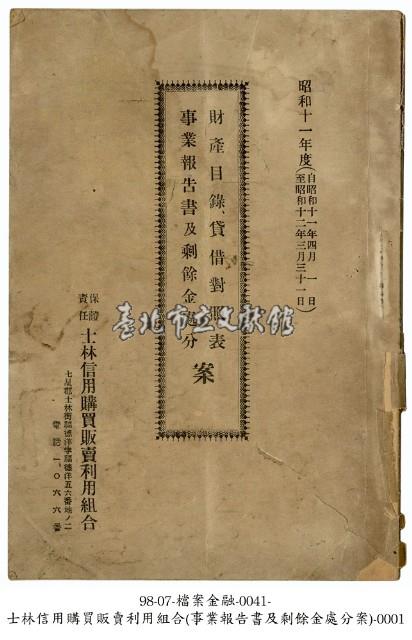 昭和十一年度(自昭和十一年四月一日 至昭和十二年三月三十一日)
財產目錄、貸借對照表
事業報告書及剩餘金處分
案
臺北市立文獻館
保證
責任
士林信用購買販賣利用組合
七星郡士林街福德洋字福德洋五六番地ノ二
電話一、〇六六番
98-07-檔案金融-0041-
士林信用購買販賣利用組合(事業報告書及剩餘金處分案)-0001